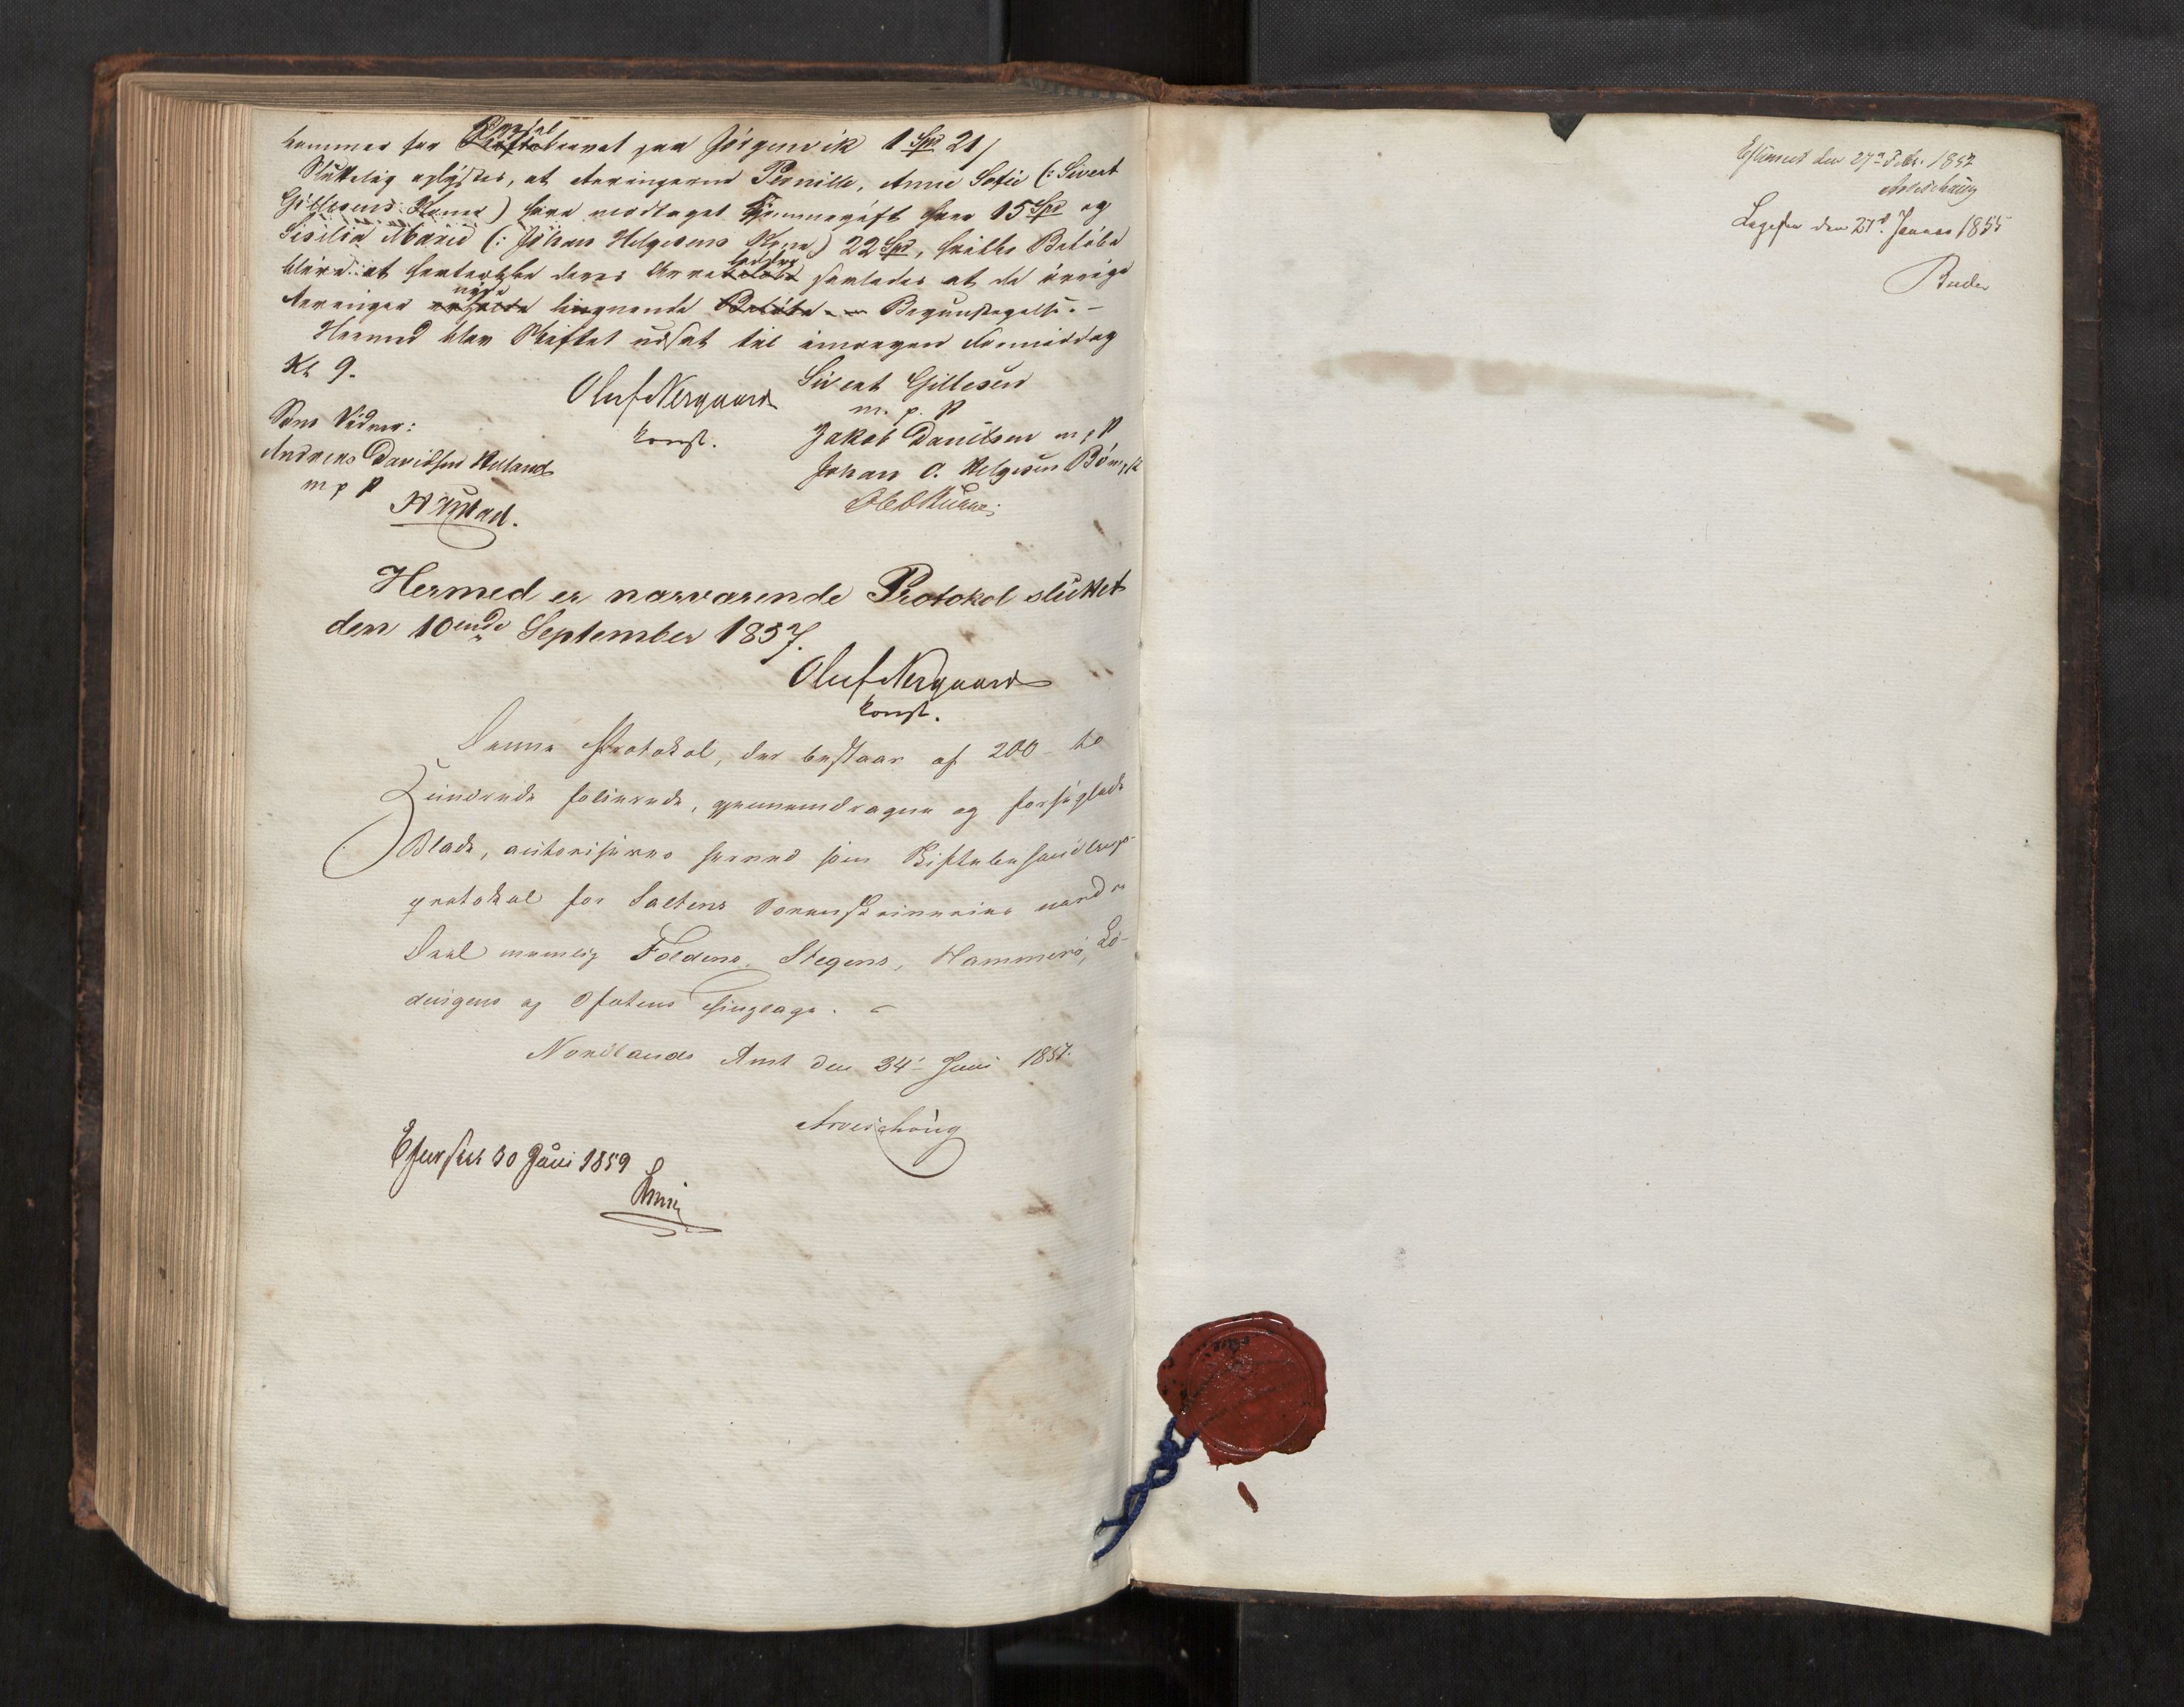 kommer for Skiftekravet paa Jörgenvik 1 Spd 21/
Sluttelig oplystes, at Arvingerne Pernille, Anne Sofie (: Sivert
Gillesens Kone) have modtaget Hjemmegift hver 15 Spd og
Sisilia Marie (: Johan Helgesens Kone) 22 Spd, hvilke Beløbe
blive at fratrække deres saaledes at de øvrige
Arvinger nyde lignende Beløbe Begunstigelse. –
Hermed blev Skiftet udsat til imorgen Formiddag
Kl 9.
Oluf Nergaard
konst.
Sivert Gillesen
m. p. P
Jakob Danilsen m p P
Johan O. Helgesen
Som Vidner:
Andreas Davidsen
m p P
Hermed er nærværende Protokol sluttet
den 10ende September 1857.
Oluf Nergaard
konst.
Denne Protokol, der bestaar af 200 – to
Hundrede folierede, gjennemdragne og forseglede
Blade, autoriseres herved som Skiftebehandlings
protokol for Saltens Sorenskriveries nordre
Deel nemlig Foldens, Stegens, Hammerø, Lø-
dingens og Ofotens Thinglage. –
Nordlands Amt den 24 Juni 1851.
Arveschoug
Efterseet 30 Juni 1859
Efterseet den 27de Febr. 1857
Arveschoug
Ligesaa den 27de Januar 1855